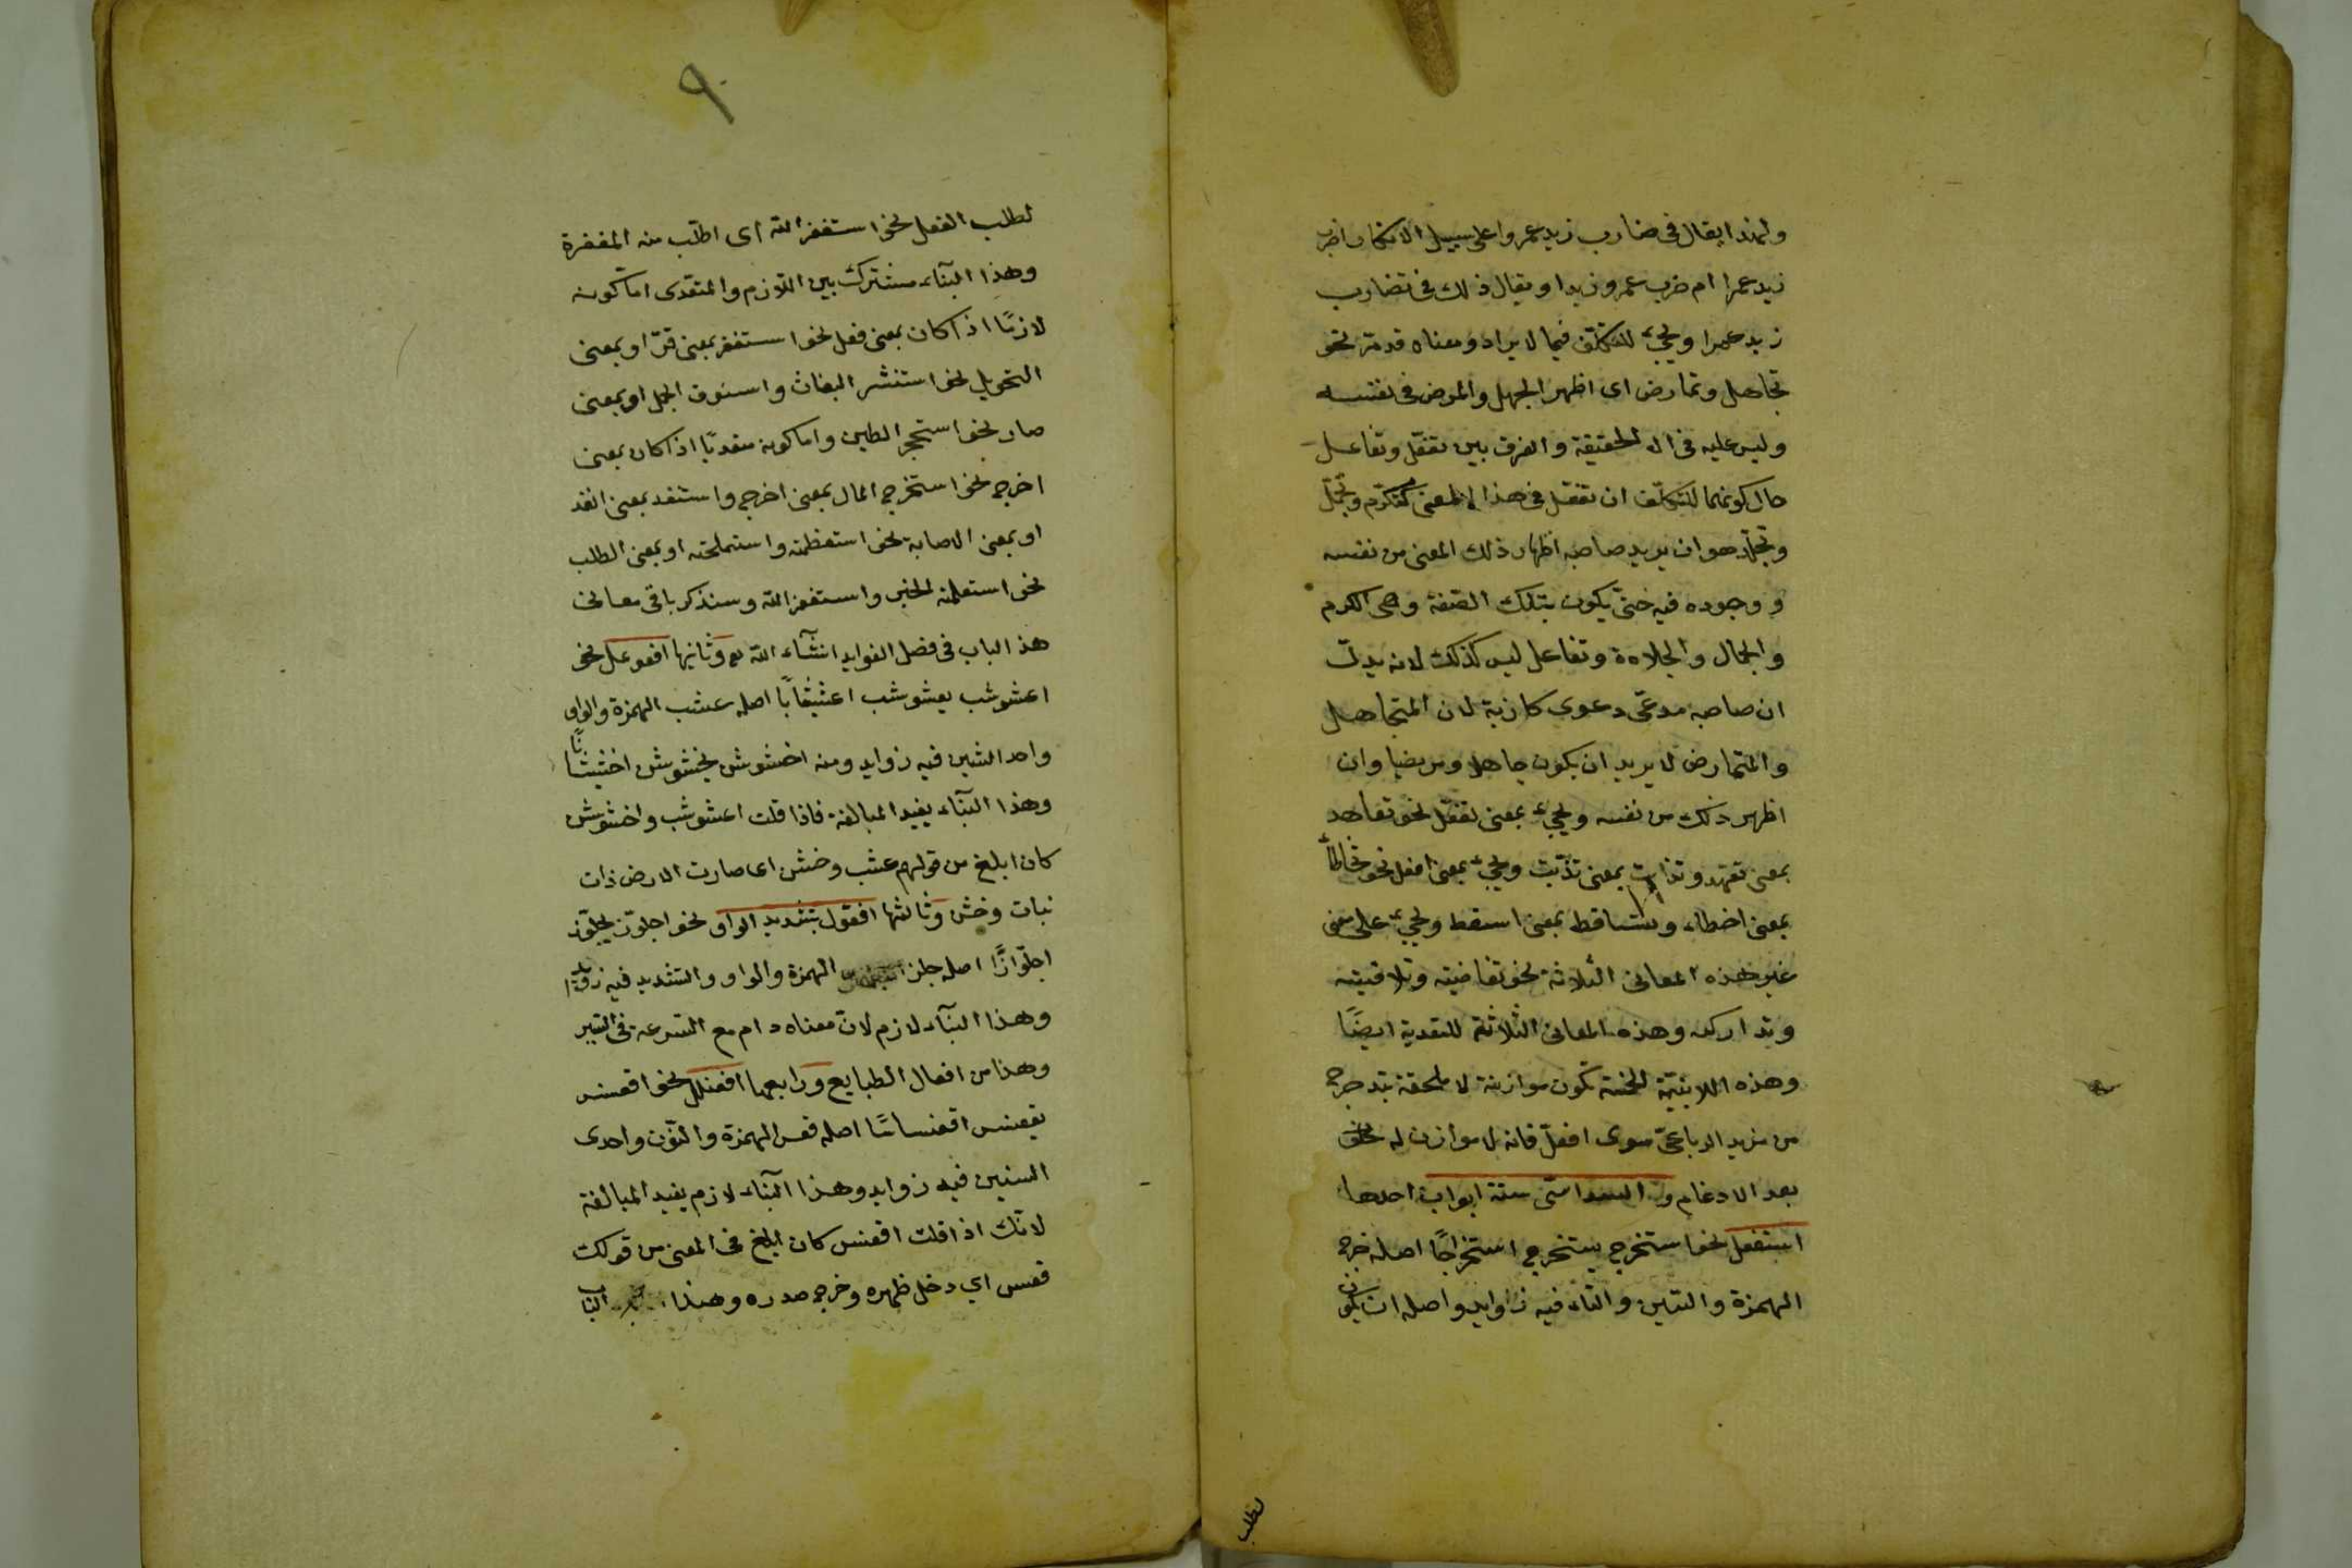 ولهذا يقال فى ضارب زيد عمروا على سبيل الانكار اضرب
زيد عمرا ام ضرب عمرو زيدا ويقال ذلك فى تضارب
زيد عمرا ويجئ للتكلف فيما لا يراد ومعناه قد مرّ نحو
تجاهل وتمارض اى اظهر الجهل والمرض فى نفسه
وليس عليه فى الحقيقة والفرق بين تفعّل وتفاعل
حال كونهما للتكلّف ان تفعّل فى هذا المعنى كتكرّم وتجمّل
وتجلّد هو ان يريد صاحبه اظهار ذلك المعنى من نفسه
ووجوده فيه حتّى يكون بتلك الصّفة وهى الكرم
والجمال والجلادة وتفاعل ليس كذلك لانه يدلّ
ان صاحبه مدعى دعوى كازبة لان المتجاهل
والمتمارض لا يريد ان يكون جاهلا ومريضا وان
اظهر ذلك من نفسه ويجئ بمعنى تفعّل نحو تعاهد
بمعنى تعهّد وتذابت بمعنى تذبّت ويجئ بمعنى افعل نحو تخاطاء
بمعنى اخطاء وتساقط بمعنى اسقط ويجئ على معنى
غير هذه المعانى الثلاثة نحو تقاضيته وتلاقيته
وتداركه وهذه المعانى الثلاثة للتعدية ايضًا
وهذه الابنيّة الخمسة تكون موازنة لا ملحقة بتدحرج
من مزيد الرباعىّ سوى افعلّ فانه لا موازن له
بعد الادغام و السداسّى ستة ابواب احدها
استفعل نحو استخرج يستخرج استخراجًا اصله خرج
الهمزة والسّين والتاء فيه زوايد واصله ان يكون
لطلب
٩
لطلب الفعل نحو استغفر الله اى اطلب منه المغفرة
وهذا البنآء مشترك بين اللازم والمتعدى امّا كونه
لازمًا اذا كان بمعنى فعل نحو استقر بمعنى قرّ او بمعنى
التحويل نحو استنسر البغاث واستنوق الجمل او بمعنى
صار نحو استحجر الطين واما كونه متعديًا اذا كان بمعنى
اخرج نحو استخرج المال بمعنى اخرج واستنفد بمعنى انفد
او بمعنى الاصابة نحو استعظمته واستملحته او بمعنى الطلب
نحو استعلمته الخبر واستغفر الله وسنذكر باقى معانى
هذا الباب فى فصل الفوايد انشآء الله تع وثانيها افعوعل نحو
اعشوشب يعشوشب اعشيشابًا اصله عشب الهمزة والواو
واحد الشين فيه زوايد ومنه اخشوشن يخشوشن اخشيشانًا
وهذا البنآء يفيد المبالغة فاذا قلت اعشوشب واخشوشن
كان ابلغ من قولهم عشب وخشن اى صارت الارض ذات
نبات وخشن وثالثها افعوّل بتشديد الواو نحو اجلوّز يجلوّز
اجلوّازًا اصله جلز الهمزة والواو والتشديد فيه زوايد
وهذا البنآء لازم لانّ معناه دام مع السّرعة فى السّير
وهذا من افعال الطبايع ورابعها افعنلل نحو اقعنسس
يقعنسس اقعنساسًا اصله قعس الهمزة والنّون واحدى
السنين فيه زوايد وهذا البنآء لازم يفيد المبالغة
لانّك اذا قلت اقعنسس كان ابلغ فى المعنى من قولك
قعس اي دخل ظهره وخرج صدره وهذا الباب